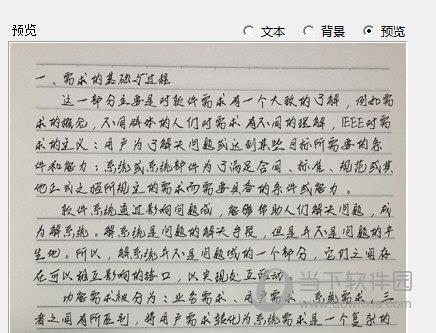 预览
文本 背景 预览
一、需求的基础与过程
这一部分主要是对软件需求有一个大致的了解，例如需
求的概念，不同群体的人们对需求有不同的理解，IEEE对需
求的定义：用户为了解决问题或达到某些目标所需要的条
件和能力；系统或系统部件为了满足合同、标准、规范或其
他正式文档所规定的需求而需要具备的条件或能力。
软件系统通过影响问题域，能够帮助人们解决问题，成
为解系统。解系统是问题的解决手段，但是并不是问题的产
生地。所以，解系统并不是问题域的一个部分，它们之间存
在可以相互影响的接口，以实现交互活动
功能需求被分为：业务需求、用户需求、系统需求、三
者之间有所区别，将用户需求转化为系统需求是一个复杂的
当下软件园